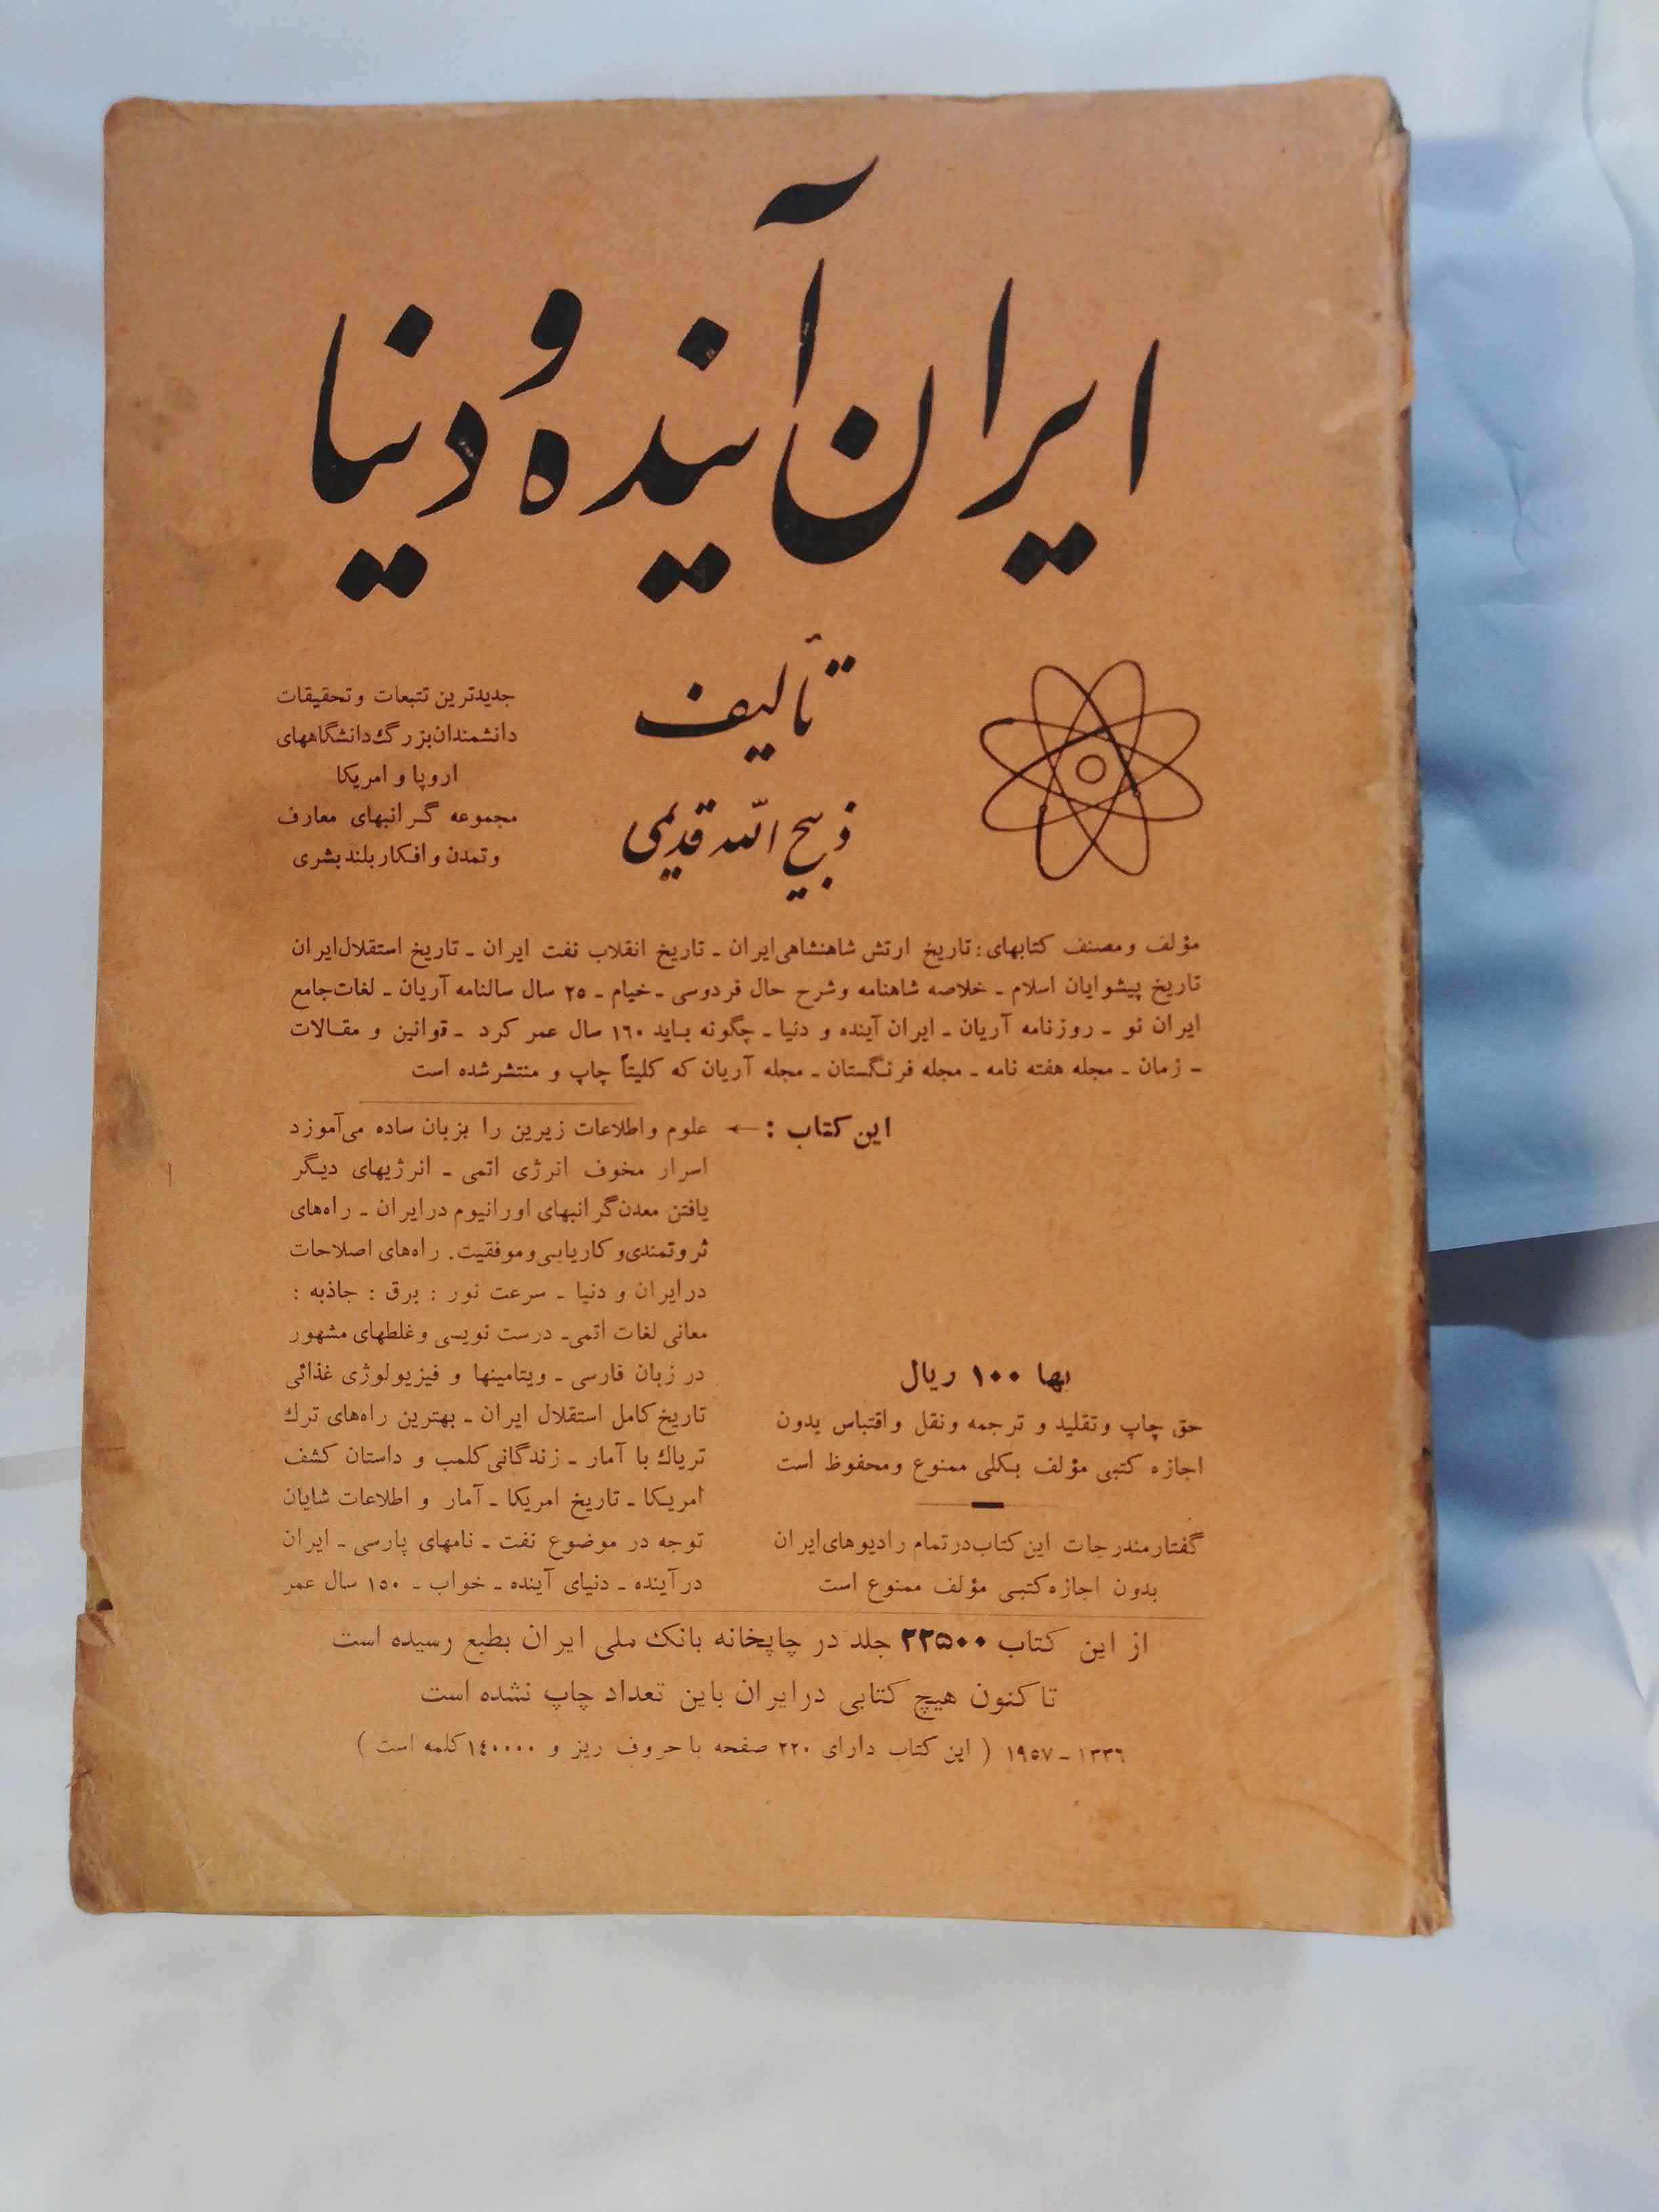 ایران آینده و دنیا
تألیف
ذبیح الله قدیمی
جدیدترین تتبعات و تحقیقات
دانشمندان بزرگ دانشگاههای
اروپا و امریکا
مجموعه گرانبهای معارف
و تمدن و افکار بلند بشری
مؤلف و مصنف کتابهای : تاریخ ارتش شاهنشاهی ایران ـ تاریخ انقلاب نفت ایران ـ تاریخ استقلال ایران
تاریخ پیشوایان اسلام ـ خلاصه شاهنامه وشرح حال فردوسی ـ خیام ـ ۲۵ سال سالنامه آریان ـ لغات جامع
ایران نو ـ روزنامه آریان ـ ایران آینده و دنیا ـ چگونه باید ۱۶۰ سال عمر کرد ـ قوانین و مقالات
ـ زمان ـ مجله هفته نامه ـ مجله فرنگستان ـ مجله آریان که کلیتاً چاپ و منتشر شده است
این کتاب : ← علوم و اطلاعات زیرین را بزبان ساده می‌آموزد
اسرار مخوف انرژی اتمی ـ انرژیهای دیگر
یافتن معدن گرانبهای اورانیوم در ایران ـ راه‌های
ثروتمندی و کاریابی و موفقیت . راه‌های اصلاحات
در ایران و دنیا ـ سرعت نور : برق : جاذبه :
معانی لغات اتمی ـ درست نویسی و غلطهای مشهور
در زبان فارسی ـ ویتامینها و فیزیولوژی غذائی
تاریخ کامل استقلال ایران ـ بهترین راه‌های ترك
تریاك با آمار ـ زندگانی کلمب و داستان کشف
امریکا ـ تاریخ امریکا ـ آمار و اطلاعات شایان
توجه در موضوع نفت ـ نامهای پارسی ـ ایران
در آینده ـ دنیای آینده ـ خواب ـ ۱۵۰ سال عمر
بها ۱۰۰ ریال
حق چاپ و تقلید و ترجمه و نقل و اقتباس بدون
اجازه کتبی مؤلف بکلی ممنوع و محفوظ است
گفتار مندرجات این کتاب در تمام رادیوهای ایران
بدون اجازه کتبی مؤلف ممنوع است
از این کتاب ۲۲۵۰۰ جلد در چاپخانه بانک ملی ایران بطبع رسیده است
تا کنون هیچ کتابی در ایران باین تعداد چاپ نشده است
۱۳۳۶ ـ ۱۹۵۷ ( این کتاب دارای ۲۲۰ صفحه با حروف ریز و ۱٤۰۰۰۰ کلمه است )